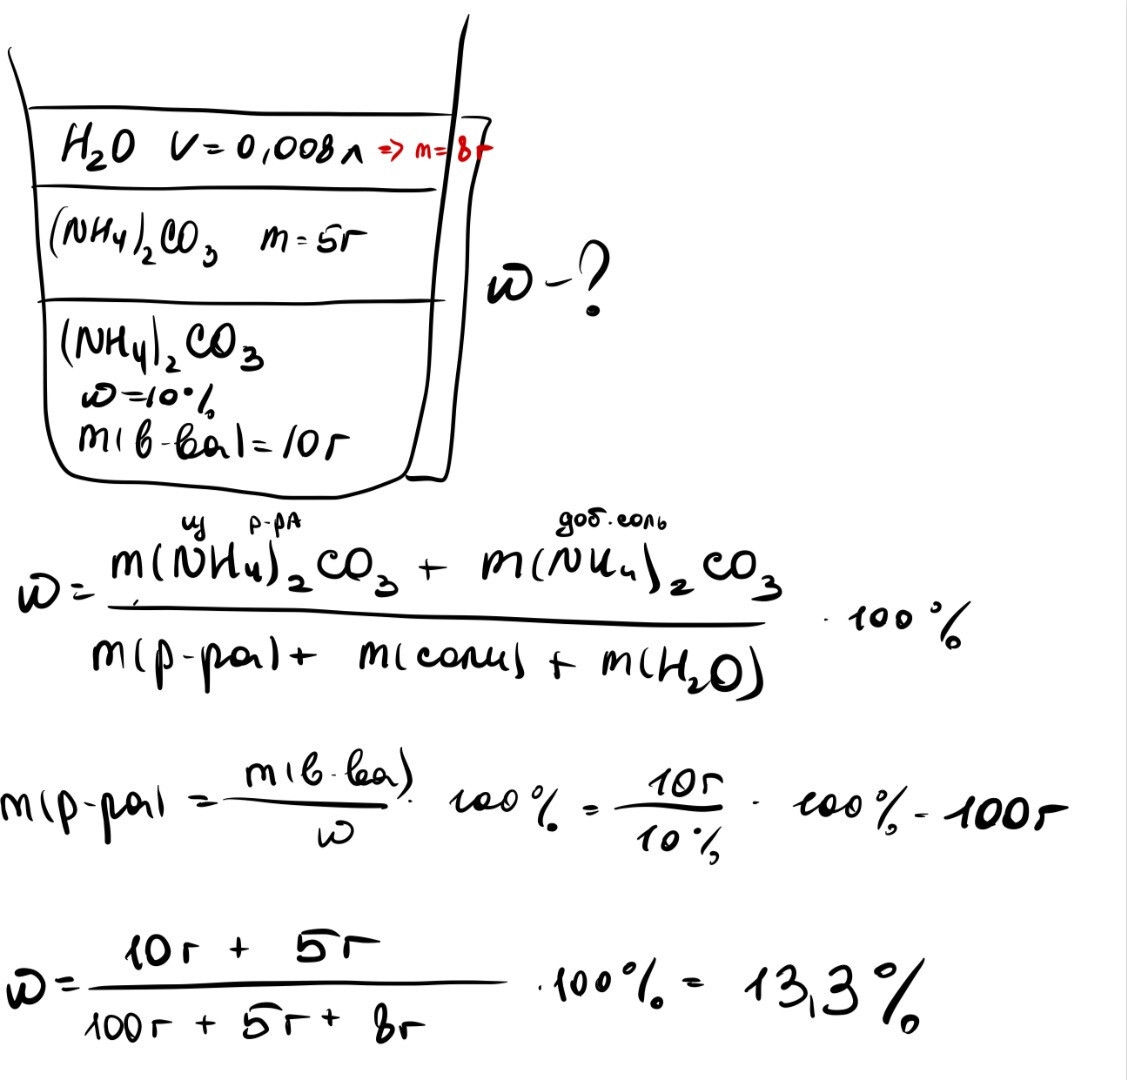 H₂O V = 0,008 л => m = 8г
(NH₄)₂CO₃ m = 5г
ω - ?
(NH₄)₂CO₃
ω = 10%
m(в-ва) = 10г
из р-ра доб. соль
ω = (m(NH₄)₂CO₃ + m(NH₄)₂CO₃) / (m(р-ра) + m(соли) + m(H₂O)) · 100%
m(р-ра) = m(в-ва) / ω · 100% = 10г / 10% · 100% = 100г
ω = (10г + 5г) / (100г + 5г + 8г) · 100% = 13,3%